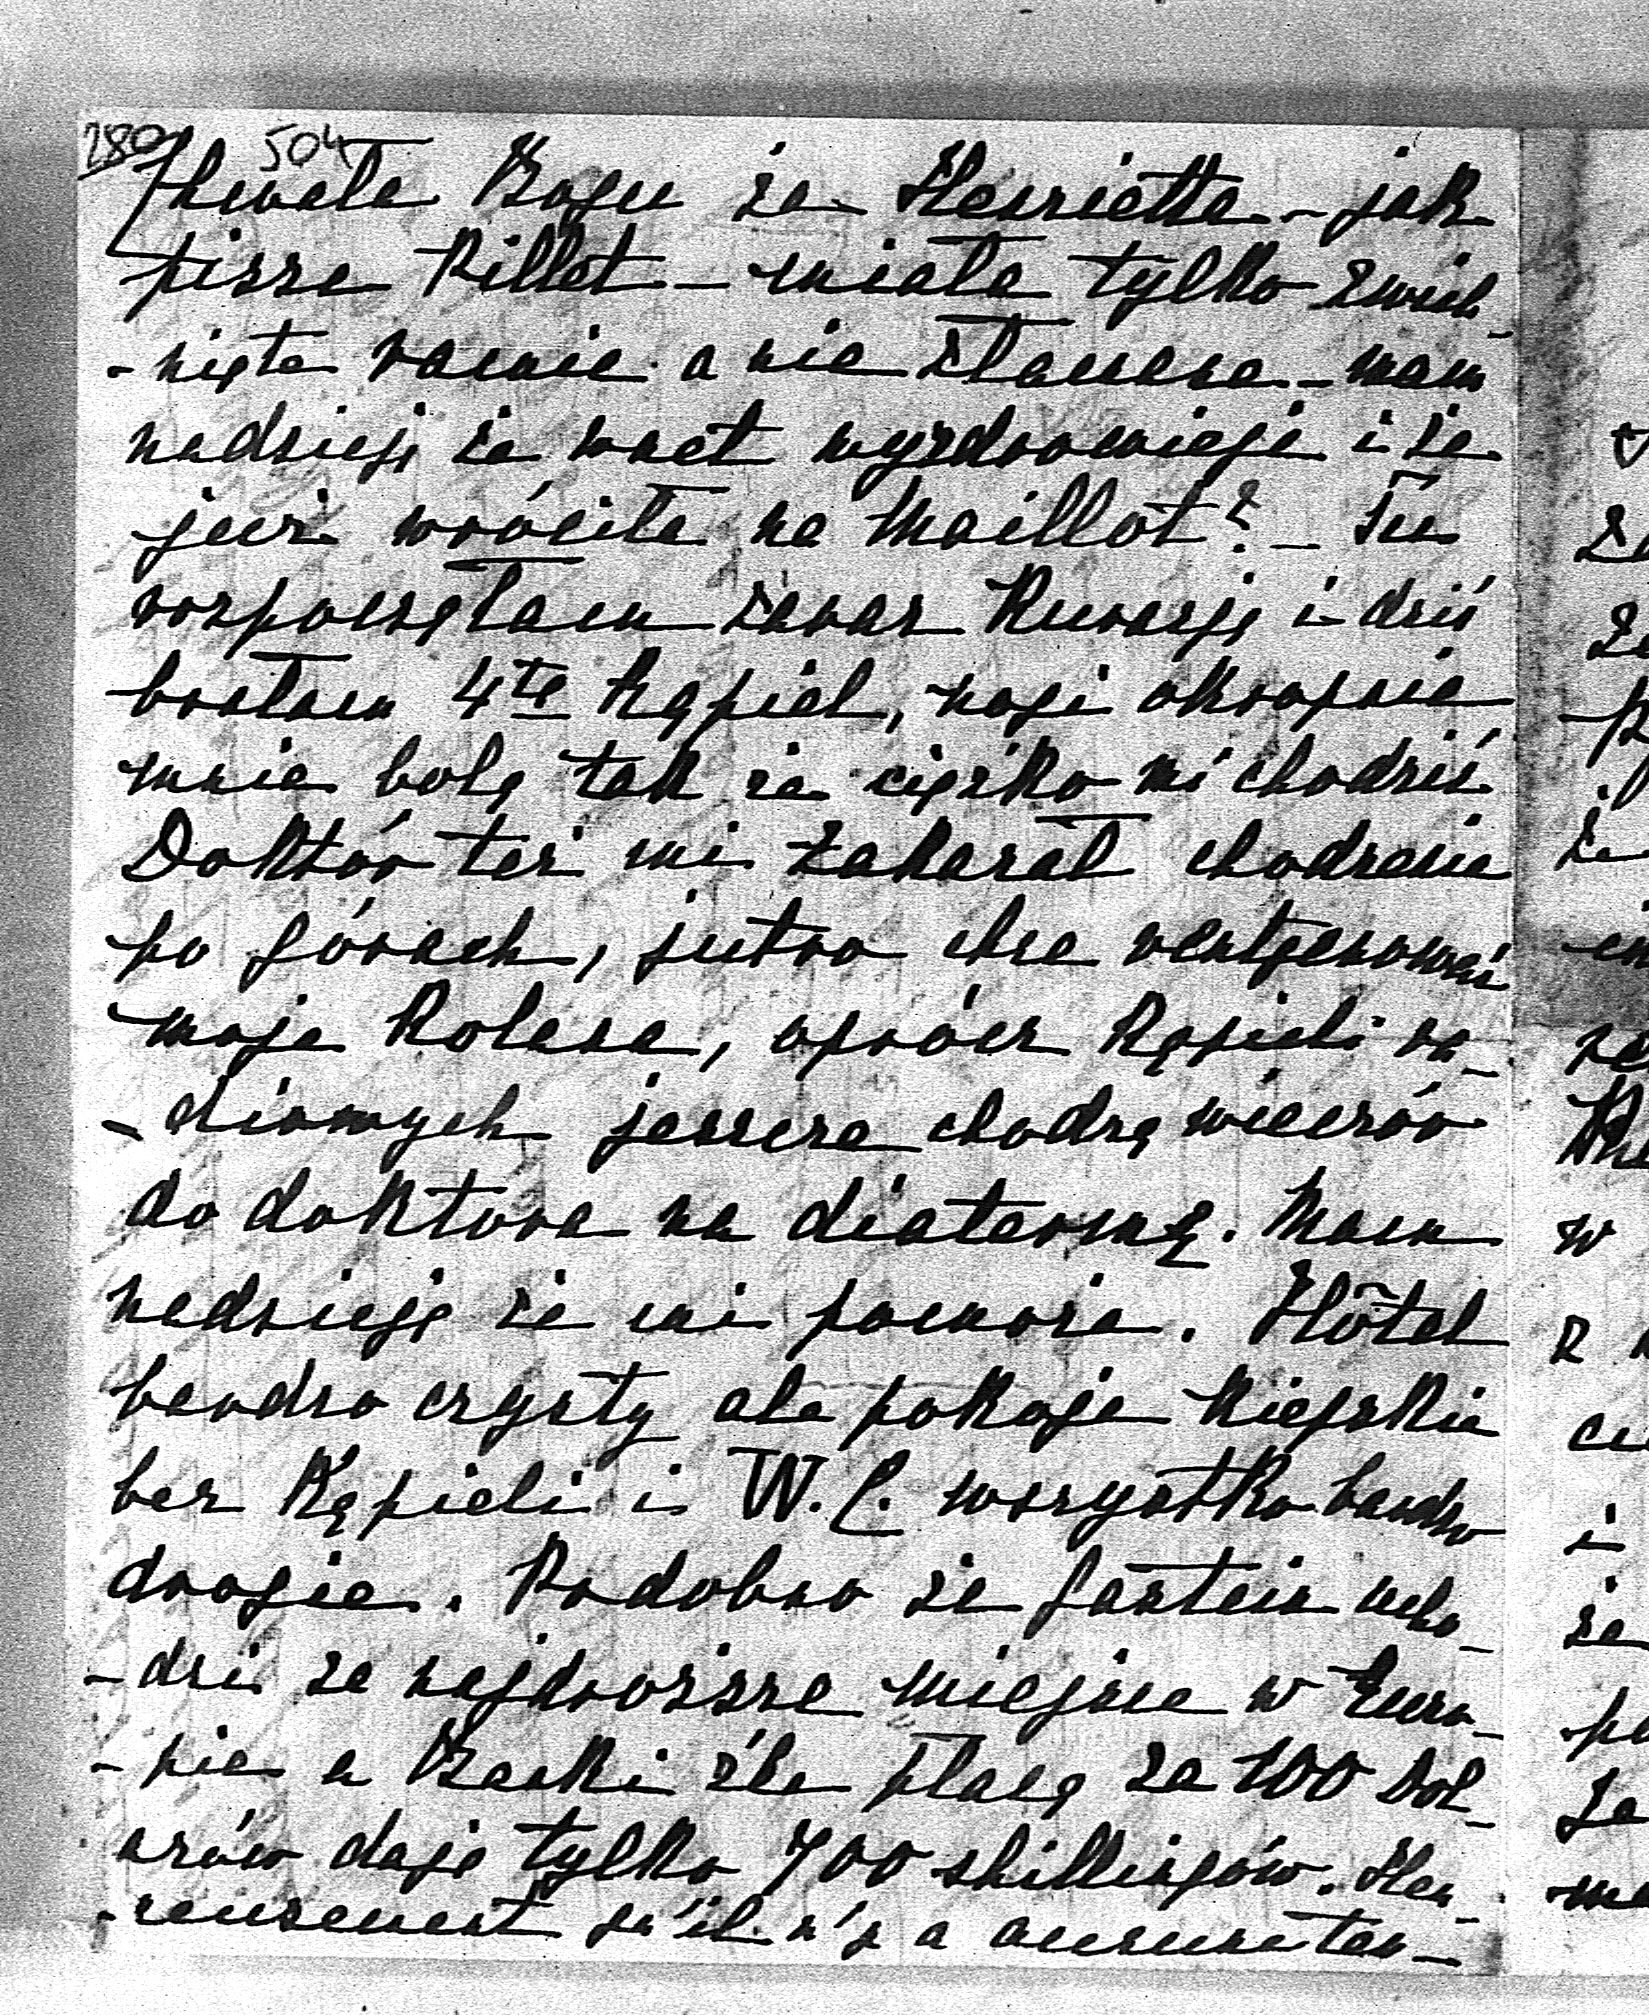 280 504
Chwała Bogu że Henrietta - jak
pisze Rillet - miała tylko zwich-
-nięte ramie a nie złamane - mam
nadzieję że wnet wyzdrowieje i że
już wróciła na Maillot? - Tu
rozpoczęłam zaraz kurację i dziś
brałam 4te kąpiel, nogi okropnie
mnie bolą tak że ciężko mi chodzić
Doktór też mi zakazał chodzenie
po górach, jutro chce rentgenować
moje kolana, oprócz kąpieli ra-
-diowych jeszcze chodzę wieczór
do doktora na diatermę. Mam
nadzieję że mi pomoże. Hôtel
bardzo czysty ale pokoje kiepskie
bez kąpieli i W.C. wszystko bardzo
drogie. Podobno że Gastein ucho-
-dzi za najdroższe miejsce w Euro-
-pie a Banki źle płacą za 100 dol-
arów dają tylko 700 shillingów. Heu-
-reusement qu'il n'y a aucune ten-